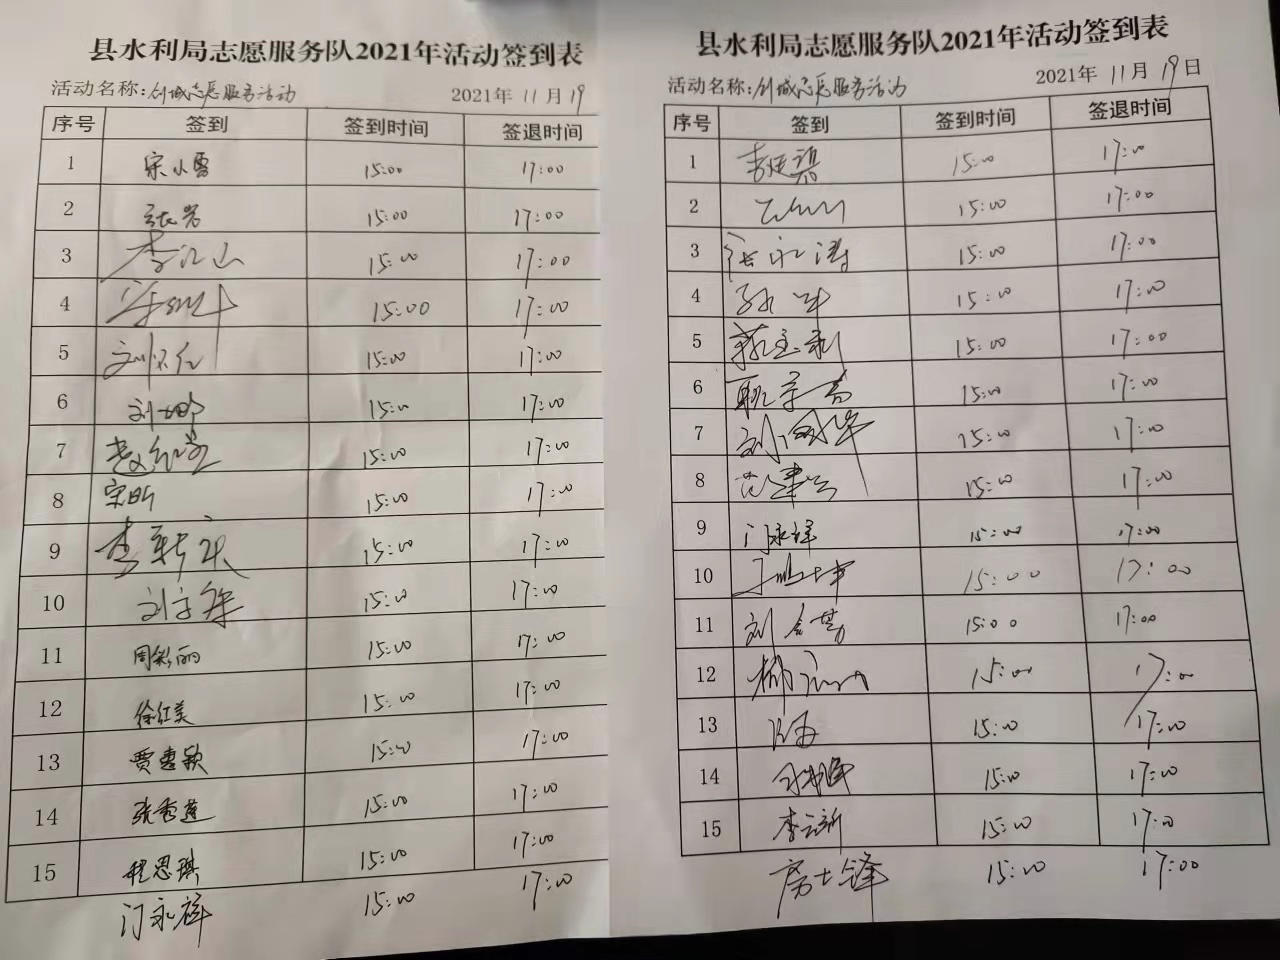 县水利局志愿服务队2021年活动签到表
活动名称:创城志愿服务活动 2021年 11 月 19
序号 签到 签到时间 签退时间
1 宋小雪 15:00 17:00
2 15:00 17:00
3 李江山 15:00 17:00
4 15:00 17:00
5 刘怀仁 15:00 17:00
6 15:00 17:00
7 15:00 17:00
8 宋昕 15:00 17:00
9 15:00 17:00
10 15:00 17:00
11 周彩丽 15:00 17:00
12 徐红美 15:00 17:00
13 贾惠颖 15:00 17:00
14 张秀莲 15:00 17:00
15 程思琪 15:00 17:00
门永祥 15:00 17:00
县水利局志愿服务队2021年活动签到表
活动名称:创城志愿服务活动 2021年 11 月 19 日
序号 签到 签到时间 签退时间
1 15:00 17:00
2 15:00 17:00
3 张永涛 15:00 17:00
4 15:00 17:00
5 15:00 17:00
6 15:00 17:00
7 15:00 17:00
8 15:00 17:00
9 门永祥 15:00 17:00
10 15:00 17:00
11 15:00 17:00
12 15:00 17:00
13 15:00 17:00
14 15:00 17:00
15 李云新 15:00 17:00
房士锋 15:00 17:00